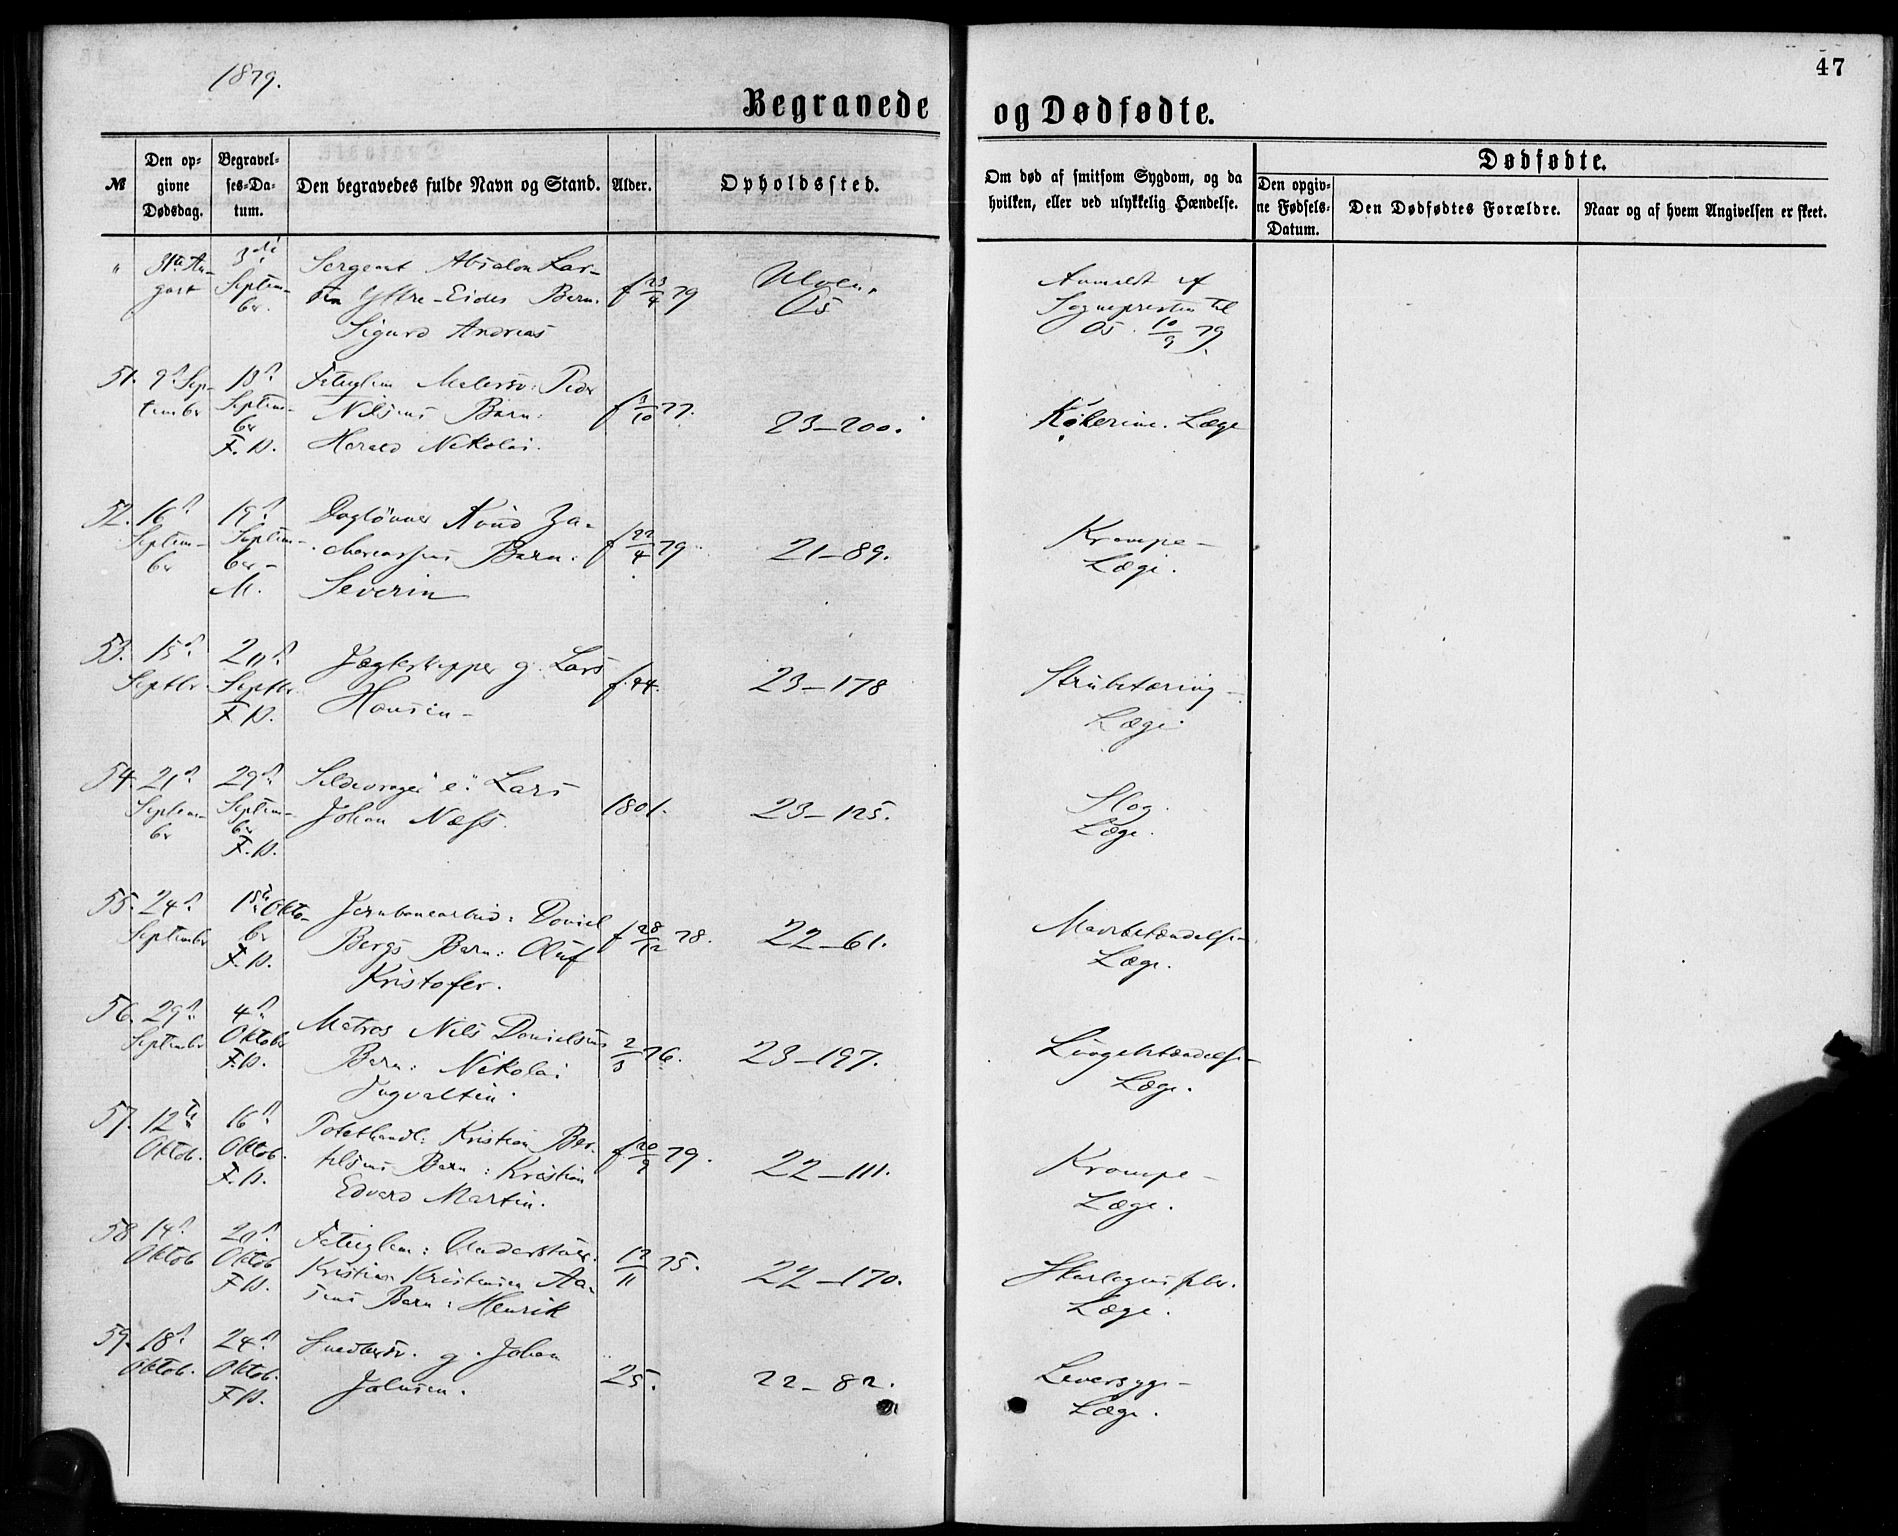 1879.
47
Begravede og Dødfødte.
№
Den op-
givne
Dødsdag.
Begravel-
ses-Da-
tum.
Den begravedes fulde Navn og Stand.
Alder.
Opholdssted.
Om død af smitsom Sygdom, og da
hvilken, eller ved ulykkelig Hændelse.
Dødfødte.
Den opgiv-
ne Fødsels-
Datum.
Den Dødfødtes Forældre.
Naar og af hvem Angivelsen er skeet.
" 31te Au-
gust
3die
Septem-
ber.
Sergeant Absalon Lar-
sen Ystre-Eides Barn:
Sigurd Andreas
f 23/4 79
Ulven,
Os
Anmeldt af
Sognepresten til
Os 10/9 79.
51. 9d Sep-
tember
13d
Septem-
ber
F.P.
Peder
Nilsens Barn:
Harald Nikolai.
f 3/10 77.
23-200.
Læge
52. 16d
Septem-
ber
19d
Septem-
ber
M.
Daglønner Knud Za-
chariassens Barn:
Severin
f 22/4 79
21-89.
Krampe-
Læge.
53. 15d
Septbr
20d
Septbr.
F.P.
Jægteskipper g. Lars
Hansen-
f. 44.
23-178
Strubetæring-
Læge.
54. 21d
Septem-
ber
29d
Septem-
ber
F.P.
Sildevrager e. Lars
Johan Næss
1801.
23-125.
Slag.
Læge.
55. 24d
September
1ste Okto-
ber
F.P.
Jernbanearbeid: Daniel
Bergs Barn: Oluf
Kristofer.
f 28/12 78.
22-61.
Læge.
56. 29d
September
4d
Oktober
F.P.
Matros Nils Danielsens
Barn: Nikolai
Ingvaltin.
76.
23-197.
Lungebetændelse-
Læge.
57. 12te
Oktob.
16d
Oktob.
F.P.
Potethandl: Kristian Ber-
telsens Barn: Kristian
Edvard Martin.
f 20/9 79.
22-111.
Krampe-
Læge.
58 14d
Oktob
20d
Oktob
F.P.
Kristian Kristensen Aa-
sens Barn: Henrik
12/11 75.
22-170.
Skarlagensfeber.
Læge.
59. 18d
Oktob.
24d
Oktob.
F.P.
Snedkersv. g. Johan
Johnsen.
25.
22-82.
Leversyge-
Læge.